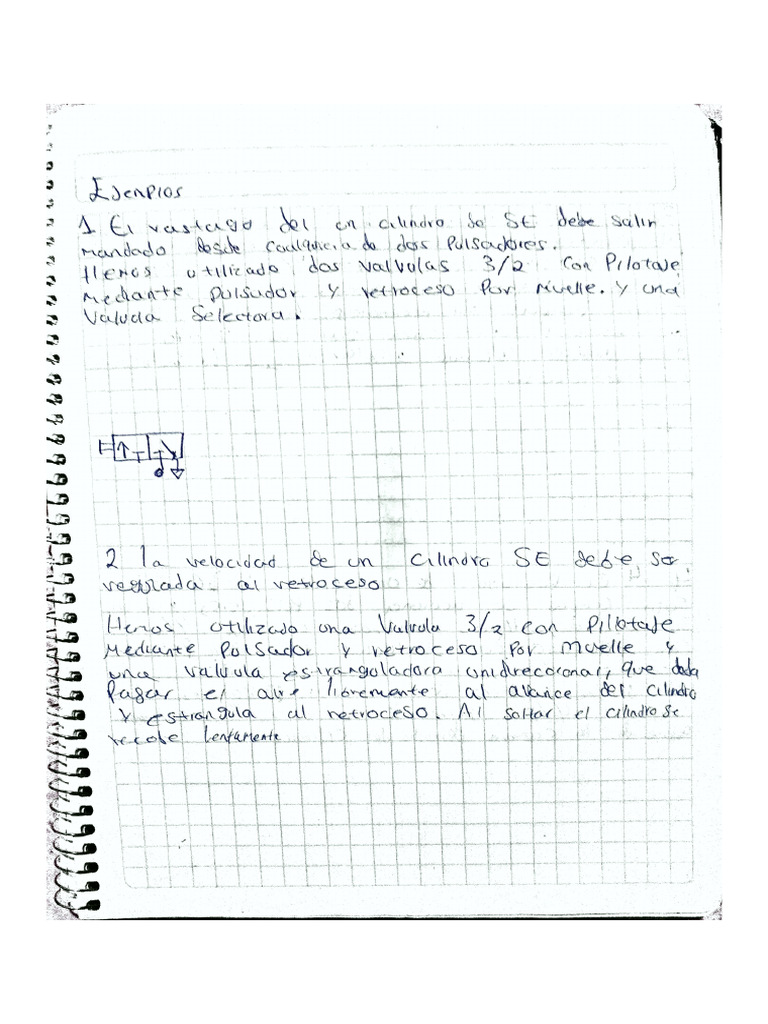 Ejenplos
1 El vastago del un cilindro de SE debe salir
mandado desde cualquiera de dos Pulsadores.
Hemos utilizado dos valvulas 3/2 con Pilotaje
mediante pulsador y retroceso Por muelle. y una
Valvula Selectora.
2 la velocidad de un cilindro SE debe ser
regulada al retroceso
Hemos utilizado una Valvula 3/2 con Pilotaje
Mediante Pulsador y retroceso Por Muelle y
una valvula estranguladora unidireccional, que
Pasar el aire libremente al avance del cilindro
y estrangula al retroceso. Al soltar el cilindro se
recoje lentamente